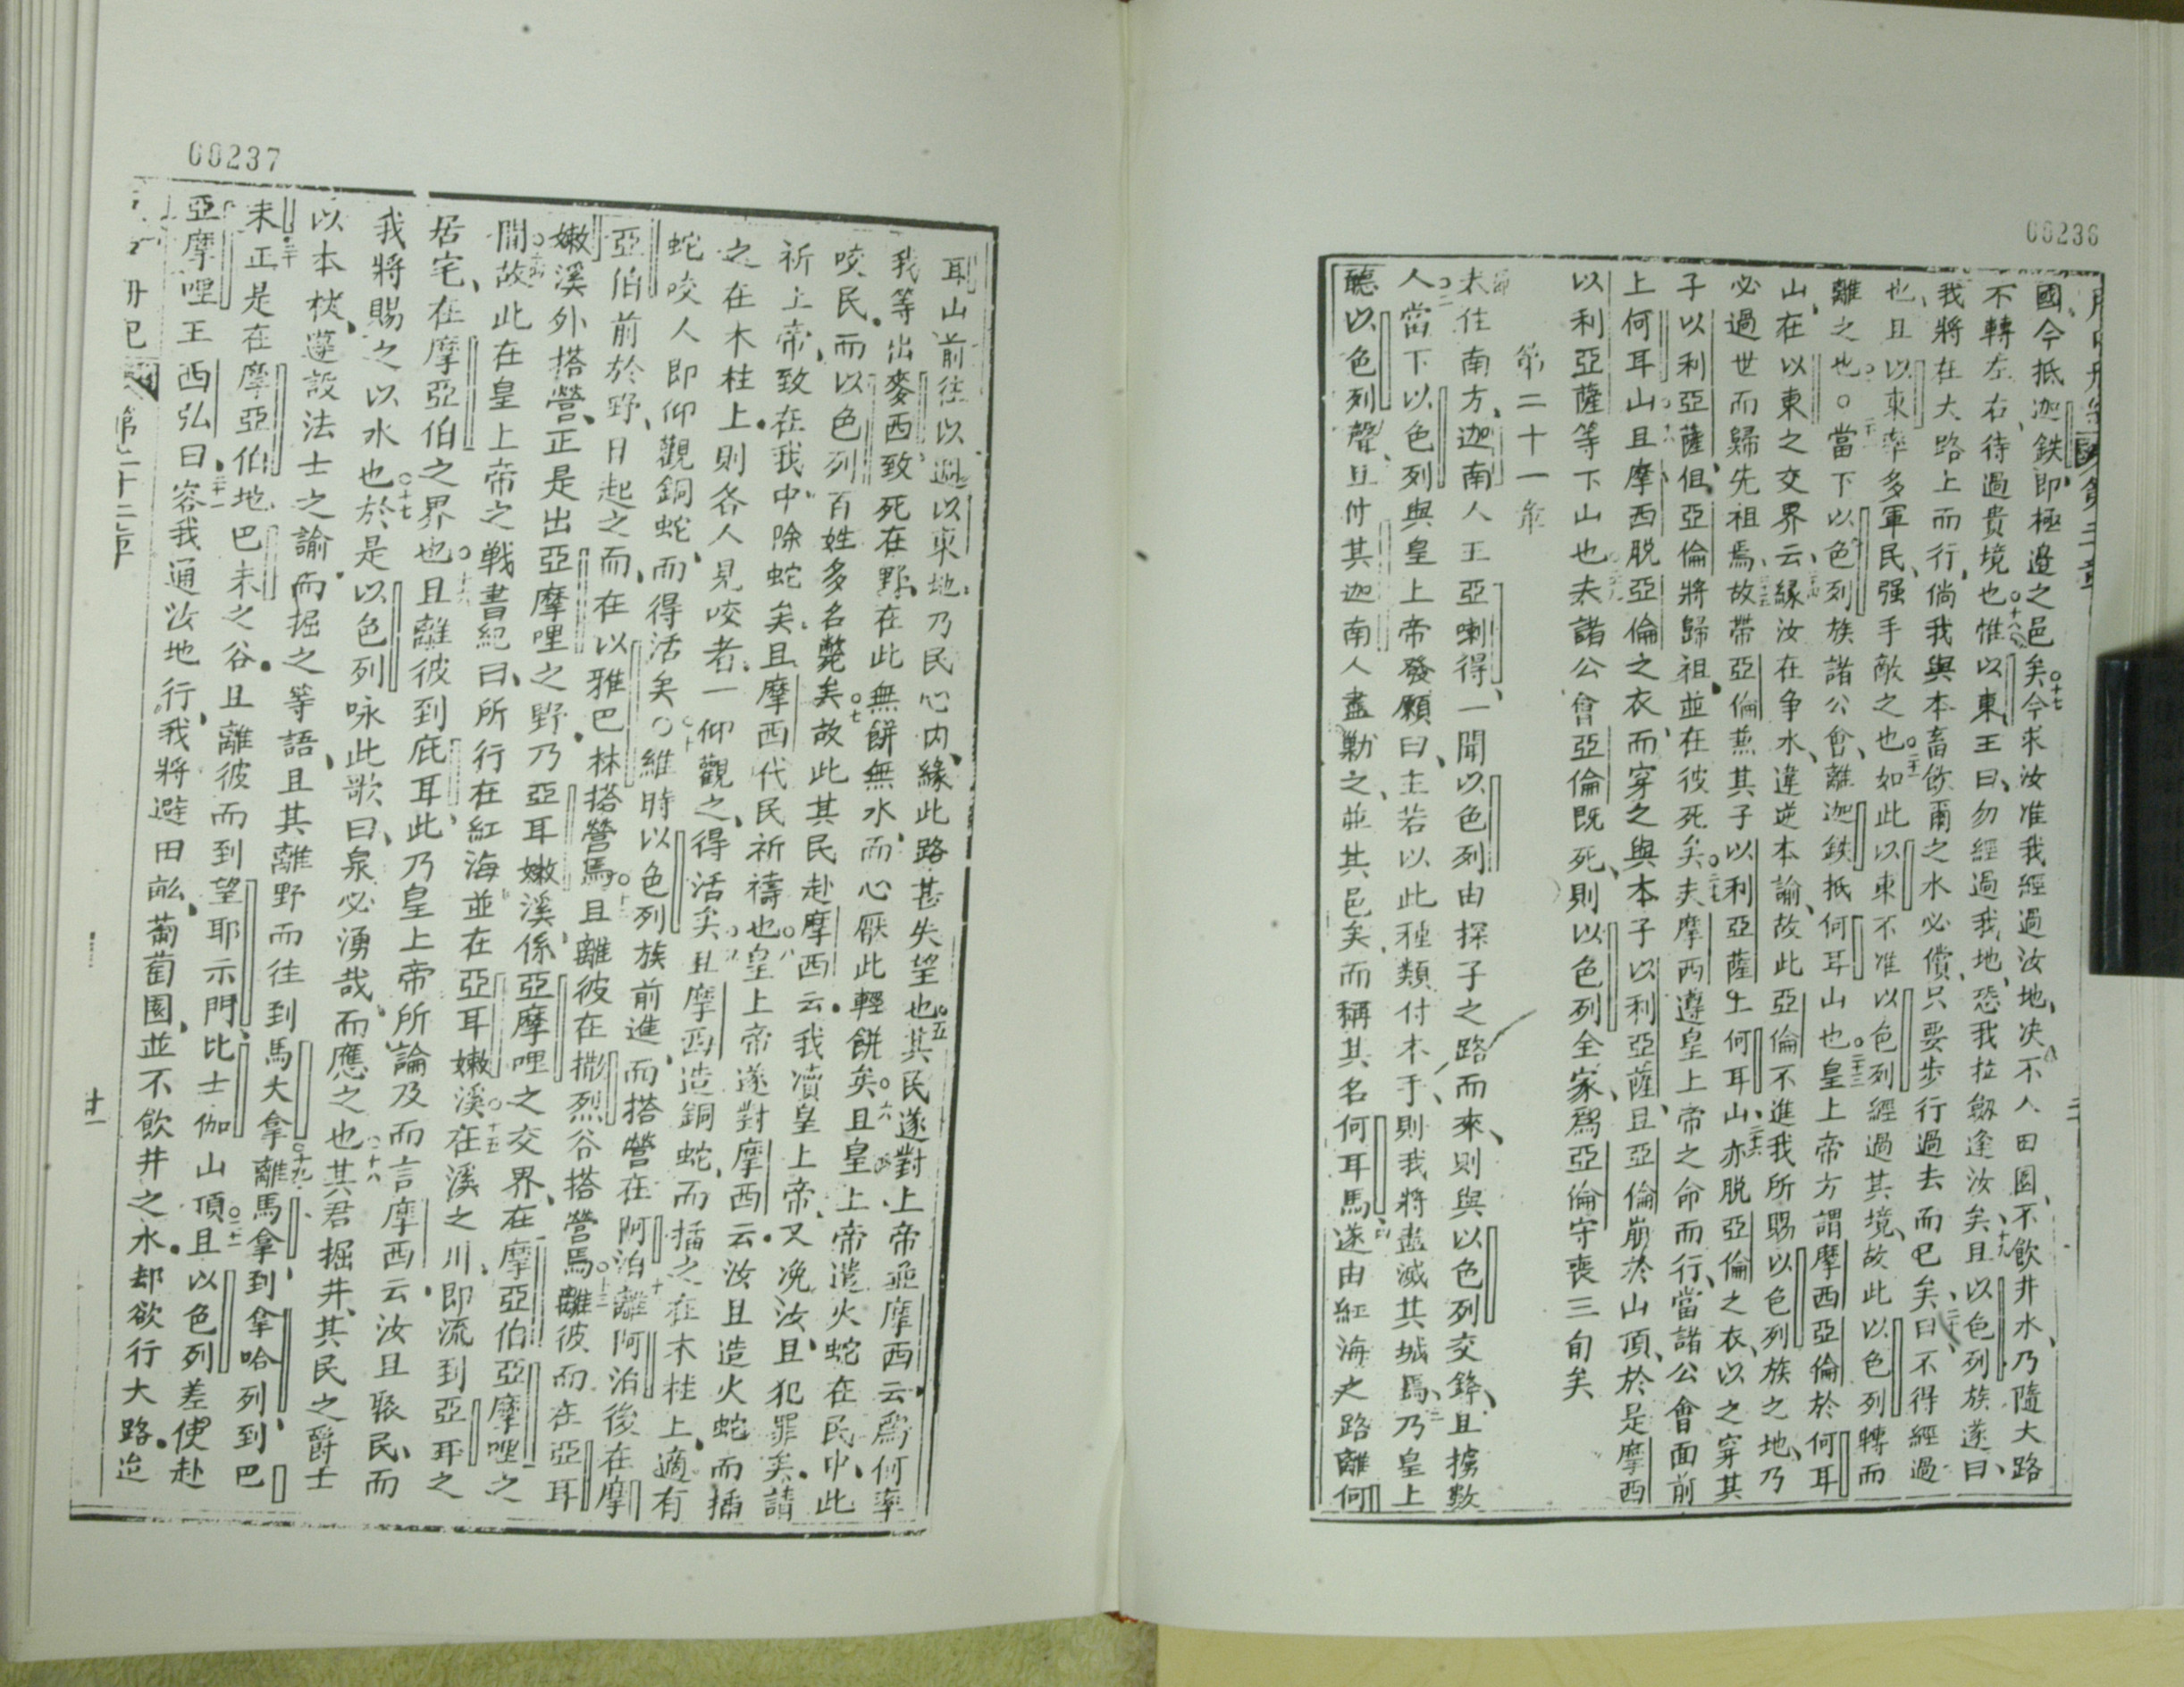 00236
國今抵迦鉄即極邊之邑矣○十七今求汝准我經過汝地決不入田園不飲井水乃隨大路
不轉左右待過貴境也○十八惟以東王曰勿經過我地恐我拉劔逢汝矣十九且以色列族遂曰
我將在大路上而行倘我與本畜飲爾之水必償只要步行過去而已矣二十曰不得經過
也且以東率多軍民强手敵之也○二十一如此以東不准以色列經過其境故此以色列轉而
離之也○當下以色列族諸公會離迦鉄抵何耳山也○二十三皇上帝方謂摩西亞倫於何耳
山在以東之交界云二十四緣汝在争水違逆本諭故此亞倫不進我所賜以色列族之地乃
必過世而歸先祖焉二十五故帶亞倫並其子以利亞薩上何耳山二十六亦脱亞倫之衣以之穿其
子以利亞薩但亞倫將歸祖並在彼死矣○二十七夫摩西遵皇上帝之命而行當諸公會面前
上何耳山且摩西脱亞倫之衣而穿之與本子以利亞薩且亞倫崩於山頂於是摩西
以利亞薩等下山也夫諸公會亞倫既死則以色列全家爲亞倫守喪三旬矣
第二十一章
夫住南方迦南人王亞喇得一聞以色列由探子之路而來則與以色列交鋒且擄数
人○二當下以色列與皇上帝發願曰主若以此種類付本手則我將盡滅其城焉三乃皇上
聽以色列聲且付其迦南人盡勦之並其邑矣而稱其名何耳馬四遂由紅海之路離何
00237
耳山前往以過以東地乃民心内緣此路甚失望也○五其民遂對上帝並摩西云爲何率
我等出麥西致死在野在此無餅無水而心厭此輕餅矣○六且皇上帝遣火蛇在民中此
咬民而以色列百姓多名斃矣○七故此其民赴摩西云我凟皇上帝又凂汝且犯罪矣請
祈上帝致在我中除蛇矣且摩西代民祈禱也○八皇上帝遂對摩西云汝且造火蛇而插
之在木柱上則各人見咬者一仰觀之得活矣○九且摩西造銅蛇而插之在木柱上適有
蛇咬人即仰觀銅蛇而得活矣○十維時以色列族前進而搭營在阿泊離阿泊後在摩
亞伯前於野日起之而在以雅巴林搭營焉○十二且離彼在撒烈谷搭營焉○十三離彼而在亞耳
嫩溪外搭營正是出亞摩哩之野乃亞耳嫩溪係亞摩哩之交界在摩亞伯亞摩哩之
間○十四故此在皇上帝之戰書紀曰所行在紅海並在亞耳嫩溪○十五在溪之川即流到亞耳之
居宅在摩亞伯之界也○十六且離彼到庇耳此乃皇上帝所論及而言摩西云汝且聚民而
我將賜之以水也○十七於是以色列咏此歌曰泉必湧哉而應之也○十八其君掘井其民之爵士
以本杖遵設法士之諭而掘之等語且其離野而往到馬大拿○十九離馬拿到拿哈列到巴
未○二十正是在摩亞伯地巴未之谷且離彼而到望耶示門比士伽山頂○二十一且以色列差使赴
亞摩哩王西弘曰二十二容我通汝地行我將避田畝葡萄園並不飲井之水却欲行大路迨
廿一